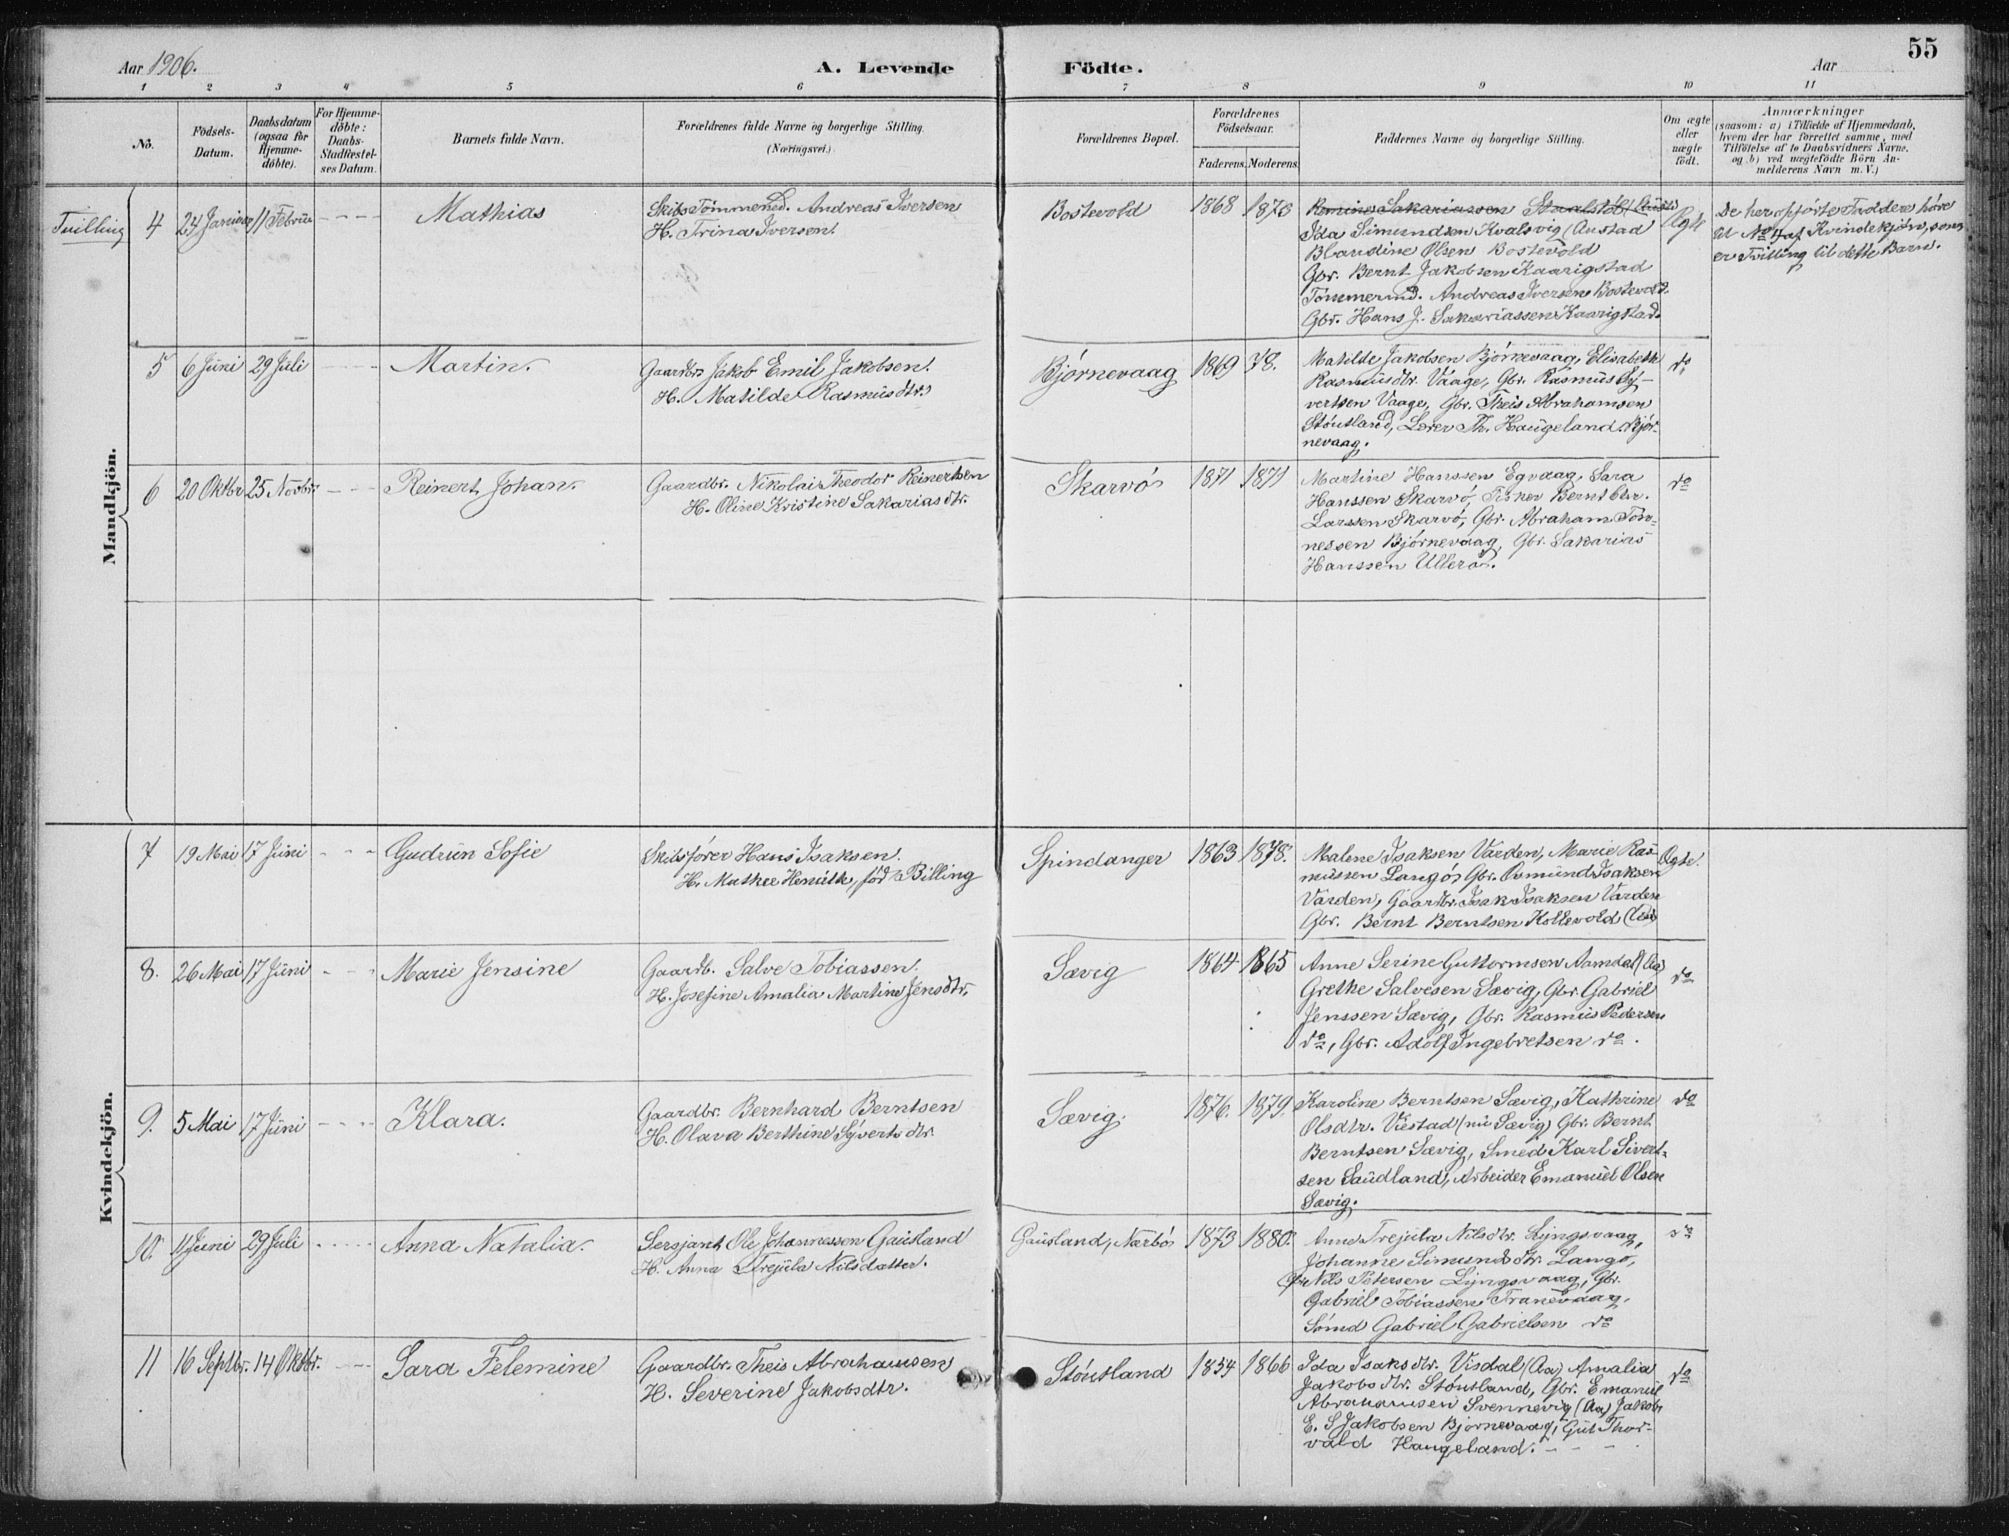 55
Aar 1906.
A. Levende Födte.
Aar
1 2 3 4 5 6 7 8 9 10 11
No.
Födsels-
Datum.
Daabsdatum
(ogsaa for
Hjemme-
döbte).
For Hjemme-
döbte:
Daabs-
Stadfæstel-
ses Datum.
Barnets fulde Navn.
Forældrenes fulde Navne og borgerlige Stilling.
(Næringsvei.)
Forældrenes Bopæl.
Forældrenes
Födselsaar.
Faderens. Moderens.
Faddernes Navne og borgerlige Stilling.
Om ægte
eller
uægte
födt.
Anmærkninger
(saasom: a) i Tilfælde af Hjemmedaab,
hvem der har forrettet samme, med
Tilföielse af to Daabsvidners Navne,
og b) ved uægtefödte Börn An-
melderens Navn m. V.)
Mandkjön.
Tvilling
4
24 Januar
11 Februar
Mathias
Skibstömmermd. Andreas Iversen
H. Trina Iversen.
Bostevold
1868
1873
Sakariassen
Ida Simundsen Kvalsvig (Austad
Blandine Olsen Bostevold
Gbr. Bernt Jakobsen Kaarigstad
Tömmermd. Andreas Iversen Bostevold.
Gbr. Hans J. Sakariassen Kaarigstad.
Ægte
De her opförte Faddere höre
til No 7 af Kvindekjön, som
er Tvilling til dette Barn.
5
6 Juni
29 Juli
Martin.
Gaardbr. Jakob Emil Jakobsen.
H. Matilde Rasmusdtr.
Bjørnevaag
1869
78.
Matilde Jakobsen Bjørnevaag, Elisabeth
Rasmusdtr. Vaage, Gbr. Rasmus Sy-
vertsen Vaage, Gbr. Theis Abrahamsen
Støutland, Lærer Th. Haugeland. Bjør-
nevaag.
do
6
20 Oktbr
25 Novbr.
Reinert Johan.
Gaardbr. Nikolai Theodor Reinertsen
H. Oline Kristine Sakariasdtr.
Skarvö
1871
1871
Martine Hanssen Egvaag, Sara
Hanssen Skarvö, Fisker Bernt Chr.
Larssen Skarvö, Gbr. Abraham Tön-
nessen Bjørnevaag, Gbr. Sakarias
Hanssen Ullerö.
do
Kvindekjön.
7
19 Mai
17 Juni
Gudrun Sofie
Skibsfører Hans Isaksen.
H. Mathee Henrikke, född Billing
Spindanger
1863
1878.
Malene Isaksen Varden, Marie Ras-
mussen Langö, Gbr. Osmund Isaksen
Varden, Gaardbr. Isak Isaksen Varden
Gbr. Bernt Berntsen Kollevold
Ægte.
8.
26 Mai
17 Juni
Marie Jensine
Gaardb. Salve Tobiassen.
H. Josefine Amalia Martine Jensdtr.
Sævig
1864
1865
Anne Serine Guttormsen Aamdal
Grethe Salvesen Sævig, Gbr. Gabriel
Jenssen Sævig, Gbr. Rasmus Pedersen
do, Gbr. Adolf Ingebretsen do.
do
9.
5 Mai
17 Juni
Klara.
Gaardbr. Bernhard Berntsen
H. Olava Berthine Syvertsdtr.
Sævig.
1876.
1879.
Karoline Berntsen Sævig, Kathrine
Olsdtr. Viestad (nu Sævig) Gbr. Bernt
Berntsen Sævig, Smed Karl Sivert-
sen Saudland, Arbeider Emanuel Olsen
Sævig.
do
10.
11 Juni
29 Juli
Anna Natalia.
Sersjant Ole Johannessen Gausland
H. Anna Trejula Nilsdatter.
Gausland, Nærbö
1873
1880.
Anna Trejula Nilsdtr. Lyngsvaag,
Johanne Simundsdtr. Langö,
Gbr. Nils Petersen Lyngsvaag, Gbr.
Gabriel Tobiassen Tranevaag.
Sømd Gabriel Gabrielsen do
do
11
16 Septbr.
14 Oktbr.
Sara Telemine
Gaardbr. Theis Abrahamsen
H. Severine Jakobsdtr.
Støutland
1854
1866
Ida Isaksdtr. Visdal (Aa) Amalia
Jakobsdtr. Støutland, Gbr. Emanuel
Abrahamsen Svennevig (Aa) Jakob
E. S. Jakobsen Bjørnevaag, Gut Thor-
vald Haugeland.
do